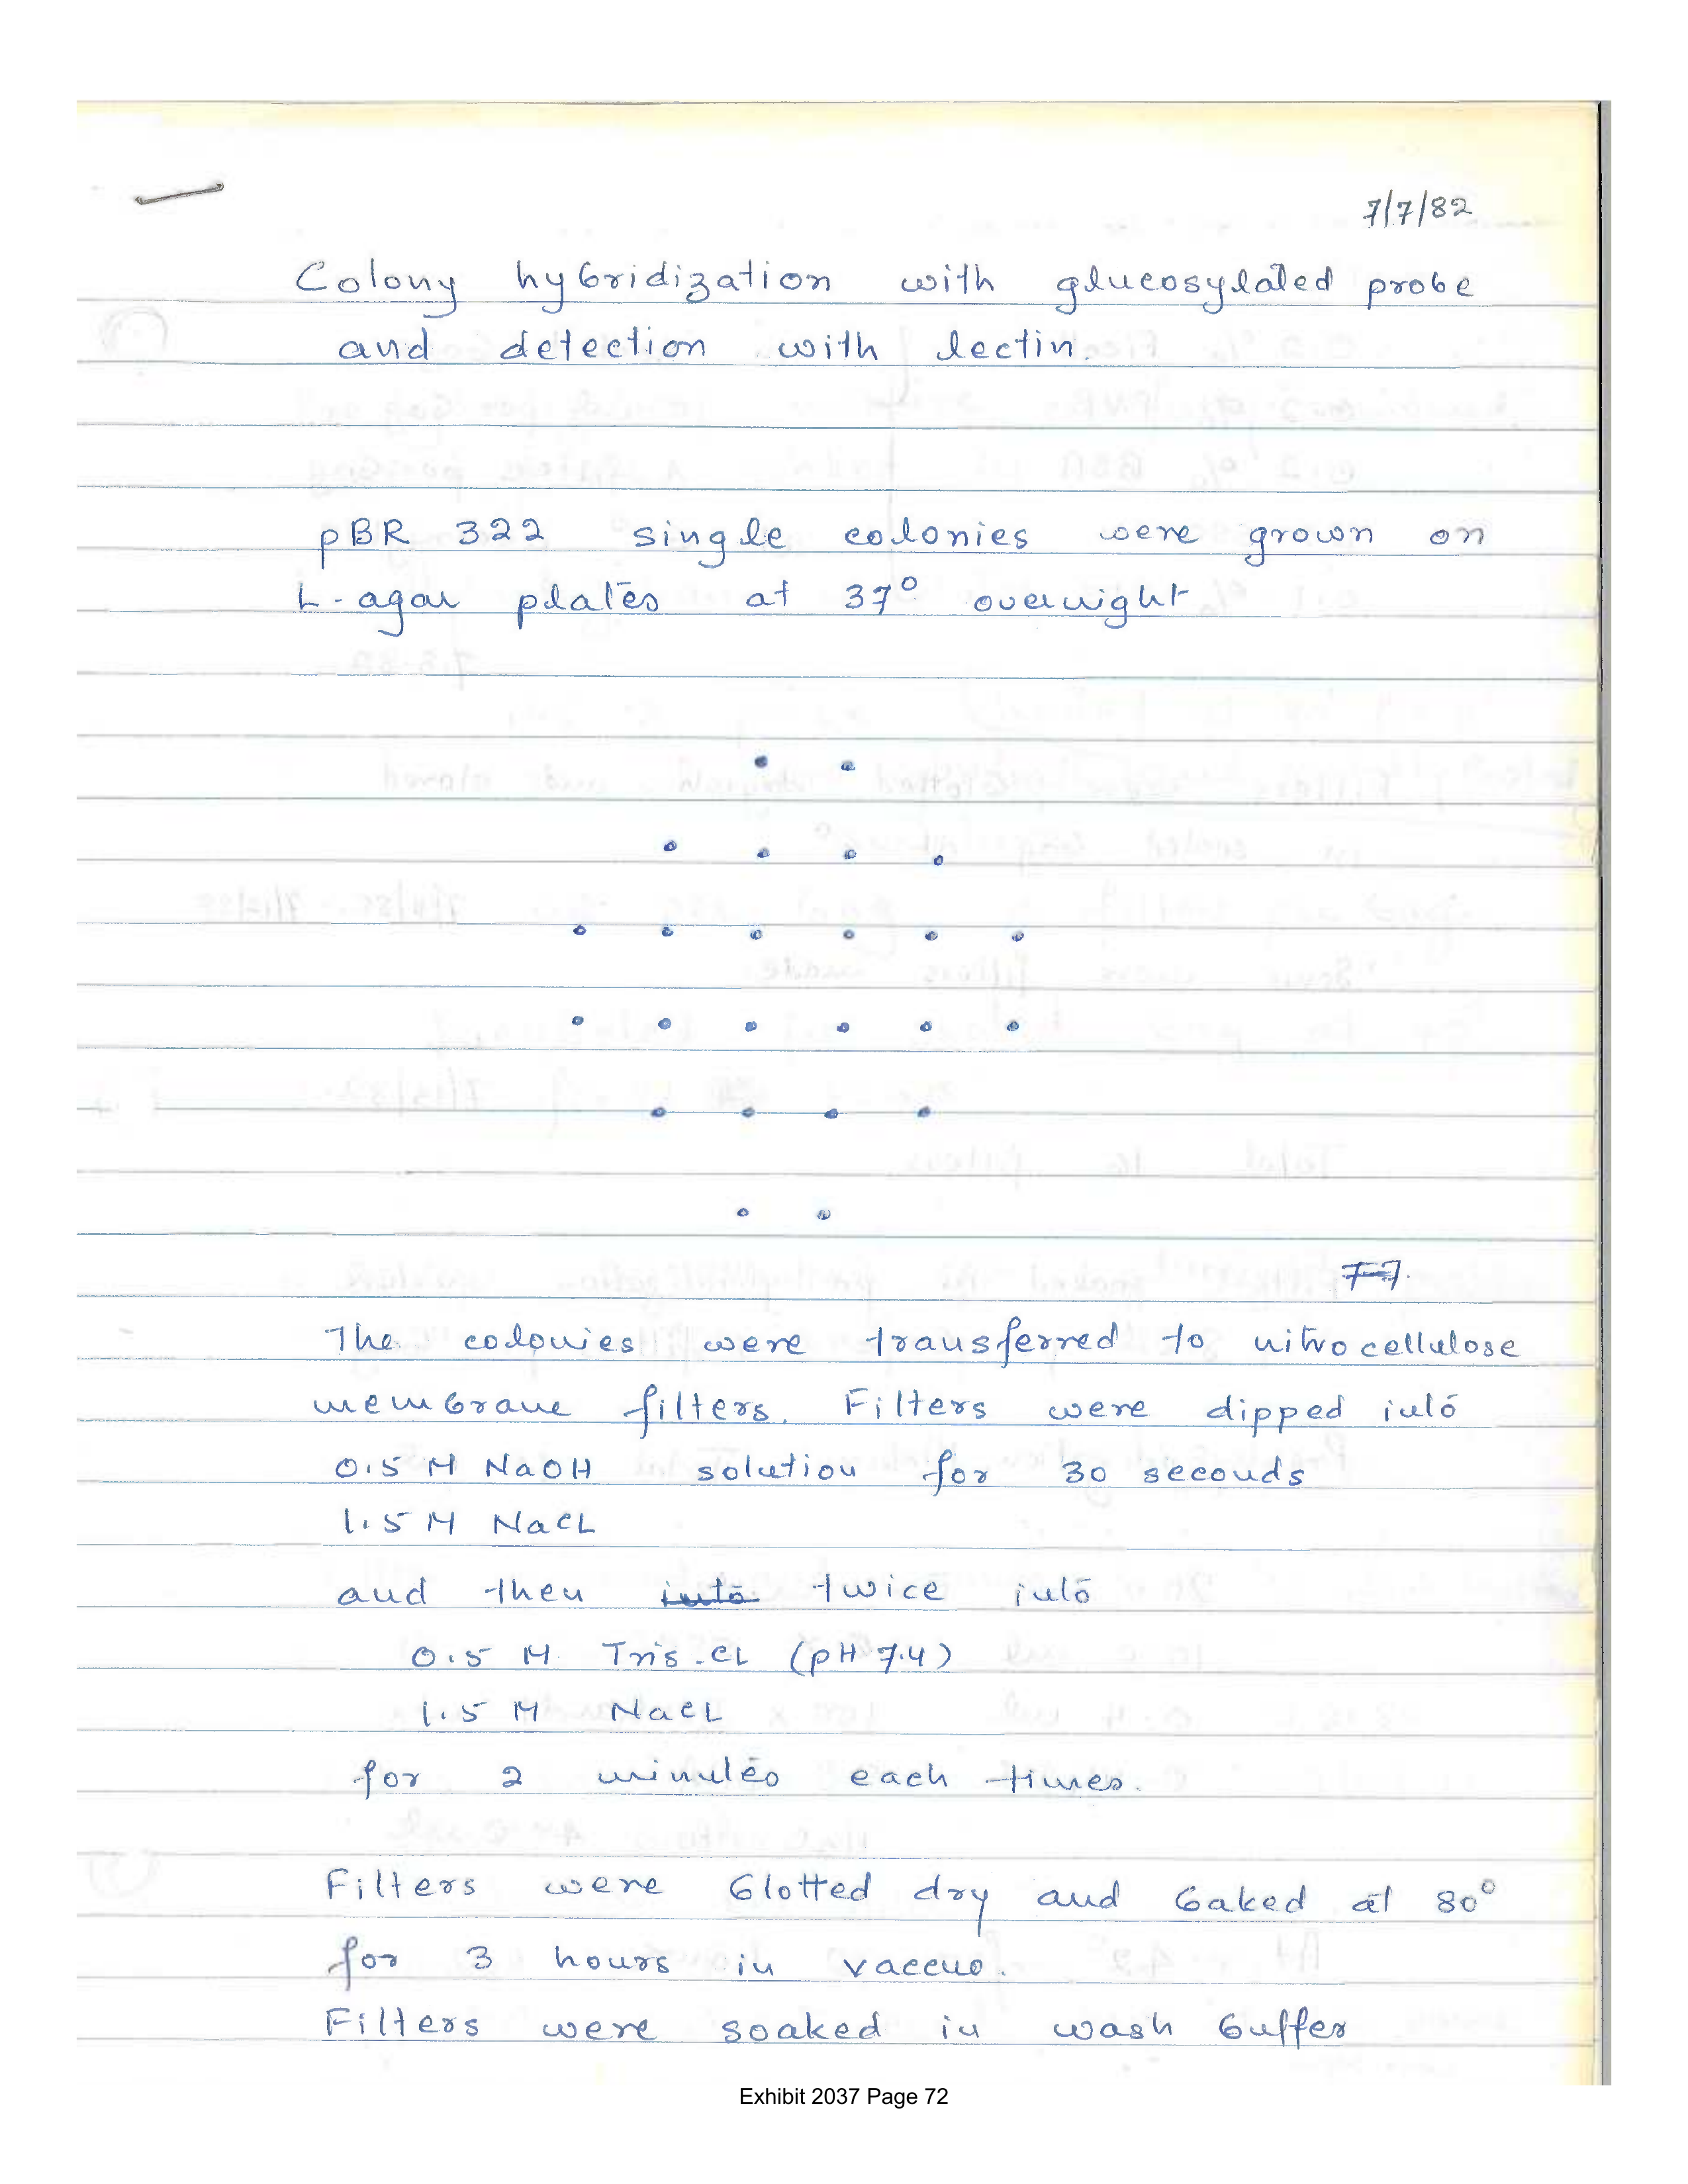 7/7/82
Colony hybridization with glucosylated probe
and detection with lectin.
pBR 322 single colonies were grown on
L-agar plates at 37° overnight
7-7.
The colonies were transferred to nitrocellulose
membrane filters. Filters were dipped into
0.5 M NaOH solution for 30 seconds
1.5 M NaCL
and then into twice into
0.5 M Tris-CL (pH 7.4)
1.5 M NaCL
for 2 minutes each times.
Filters were blotted dry and baked at 80°
for 3 hours in vaccuo.
Filters were soaked in wash buffer
Exhibit 2037 Page 72